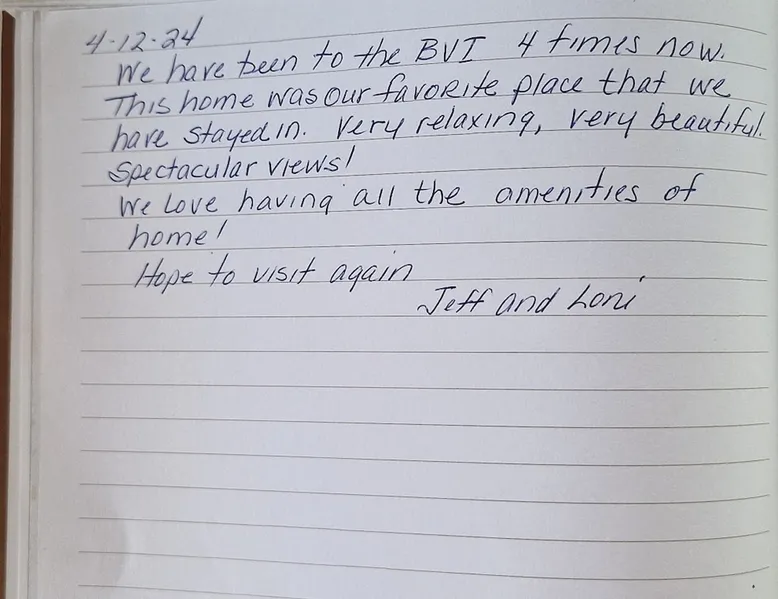 4-12-24
We have been to the BVI 4 times now.
This home was our favorite place that we
have stayed in. Very relaxing, very beautiful.
Spectacular views!
We love having all the amenities of
home!
Hope to visit again
Jeff and Lori